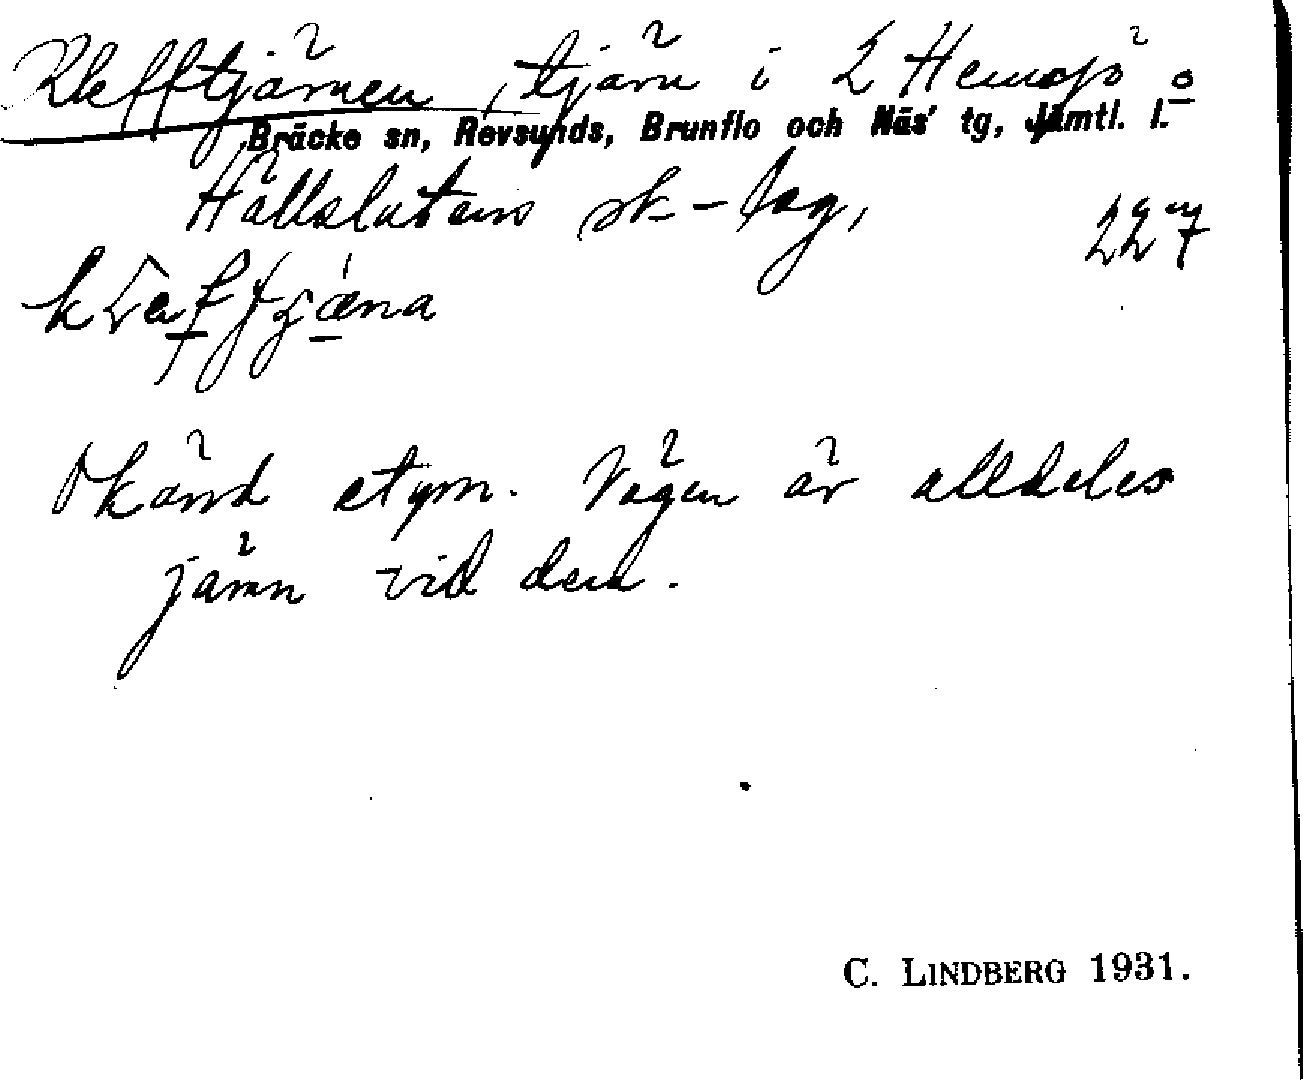 Klefftjärnen, tjärn i L Hemsjö o
Bräcke sn, Revsunds, Brunflo och Näs' tg, Jämtl. l.
Hällslåtens sk-lag,
227
Okänd etym. Vägen är alldeles
jämn vid den.
C. LINDBERG 1931.